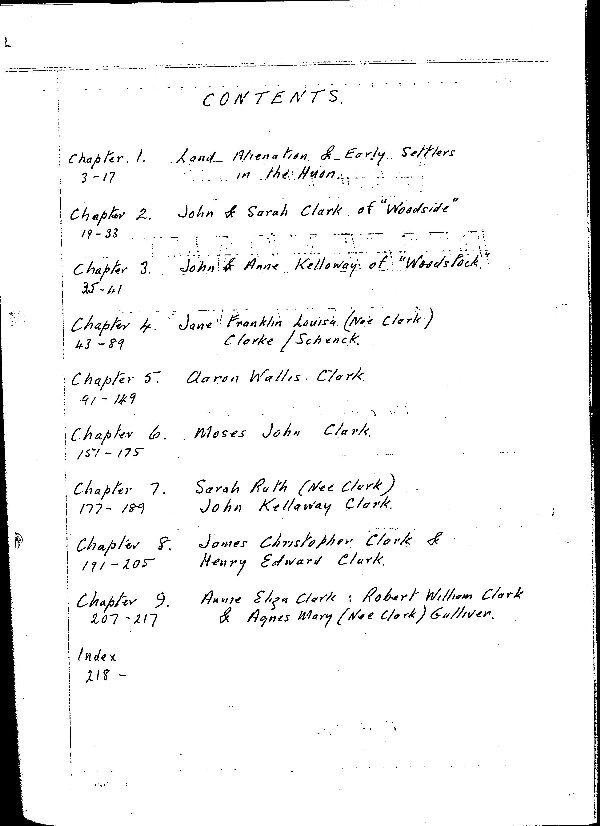 CONTENTS.
Chapter 1. Land Alienation & Early Settlers
3-17 in the Huon.
Chapter 2. John & Sarah Clark of "Woodside"
19-33
Chapter 3. John & Anne Kelloway of "Woodstock"
35-41
Chapter 4. Jane Franklin Louisa (Nee Clark)
43-89 Clarke / Schenck.
Chapter 5. Aaron Wallis Clark.
91-149
Chapter 6. Moses John Clark.
151-175
Chapter 7. Sarah Ruth (Nee Clark)
177-189 John Kellaway Clark.
Chapter 8. James Christopher Clark &
191-205 Henry Edward Clark.
Chapter 9. Annie Eliza Clark ; Robert William Clark
207-217 & Agnes Mary (Nee Clark) Gulliver.
Index
218 -